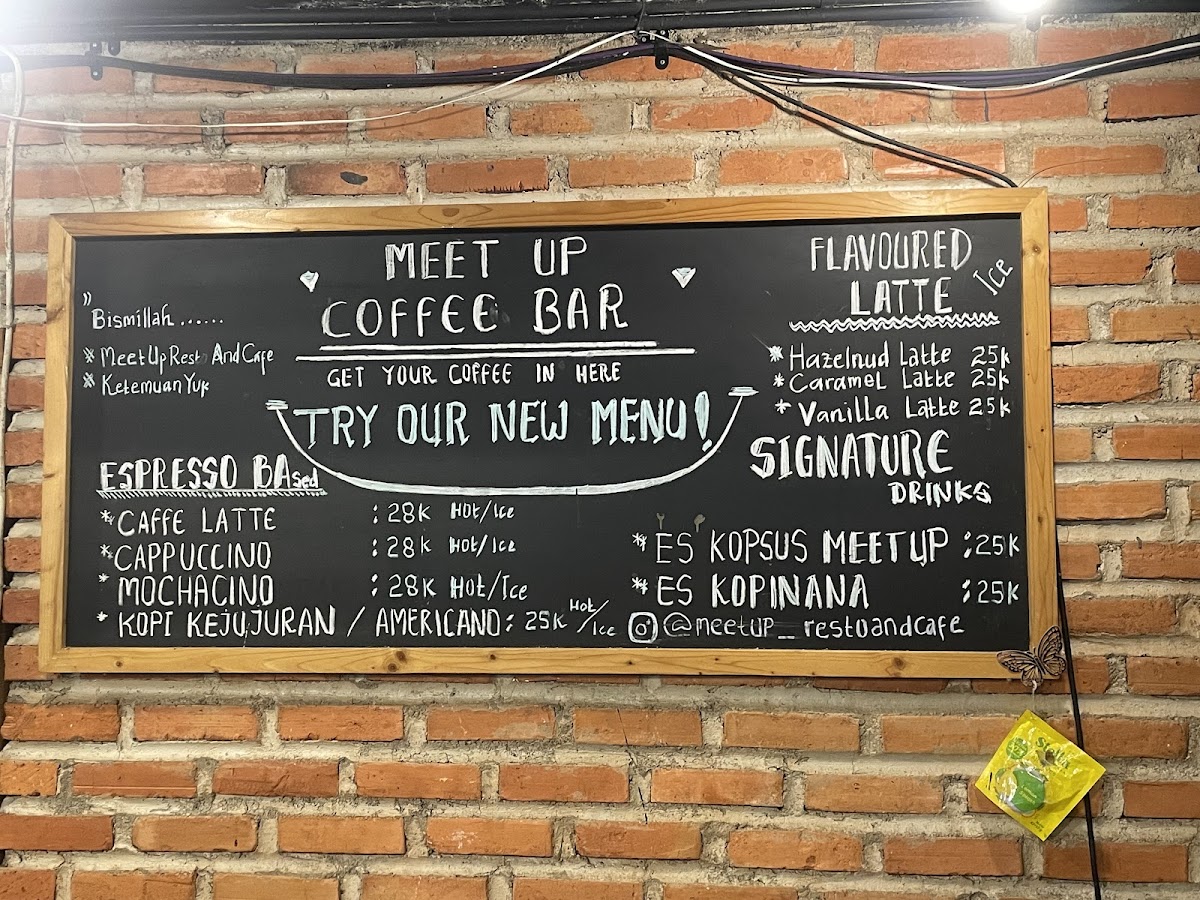 MEET UP
COFFEE BAR
GET YOUR COFFEE IN HERE
TRY OUR NEW MENU!
" Bismillah ......
* MeetUpResto AndCafe
* KetemuanYuk
ESPRESSO BASed
* CAFFE LATTE : 28K Hot/Ice
* CAPPUCCINO : 28K Hot/Ice
* MOCHACINO : 28K Hot/Ice
* KOPI KEJUJURAN / AMERICANO : 25K Hot/Ice
FLAVOURED
LATTE Ice
* Hazelnud Latte 25k
* Caramel Latte 25k
* Vanilla Latte 25k
SIGNATURE
DRINKS
* ES KOPSUS MEETUP : 25K
* ES KOPINANA : 25K
@meetup_restoandcafe
Stella